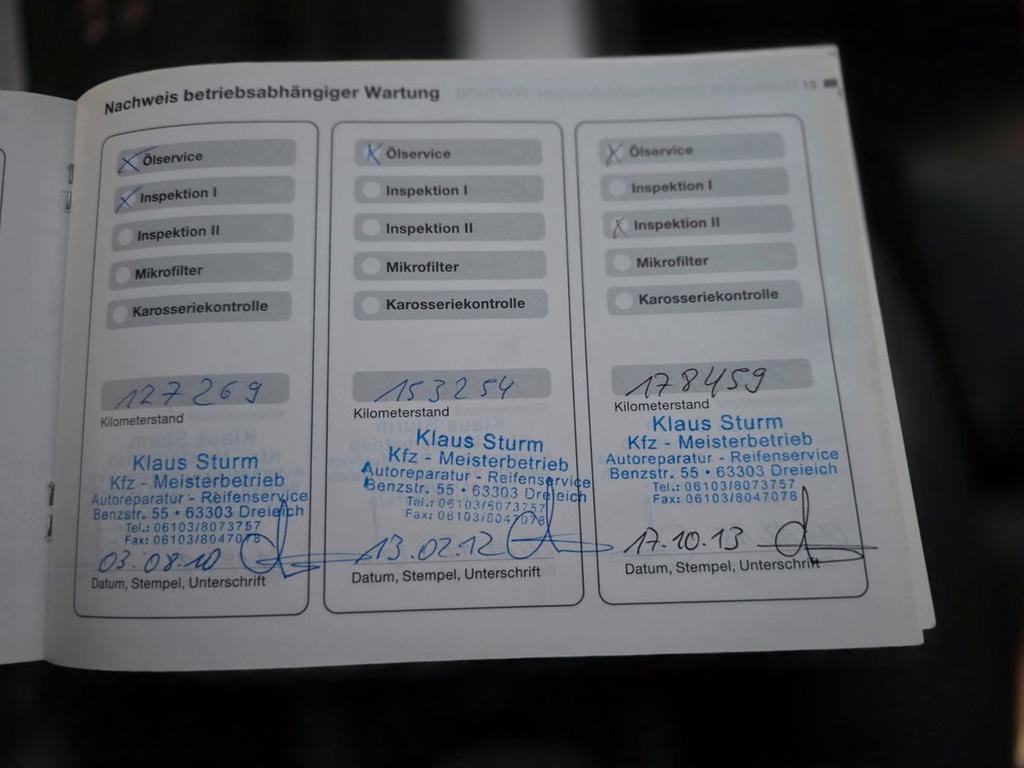 Nachweis betriebsabhängiger Wartung
13
Ölservice
Inspektion I
Inspektion II
Mikrofilter
Karosseriekontrolle
127269
Kilometerstand
Klaus Sturm
Kfz - Meisterbetrieb
Autoreparatur - Reifenservice
Benzstr. 55 • 63303 Dreieich
Tel.: 06103/8073757
Fax: 06103/8047078
03.08.10
Datum, Stempel, Unterschrift
Ölservice
Inspektion I
Inspektion II
Mikrofilter
Karosseriekontrolle
153254
Kilometerstand
Klaus Sturm
Kfz - Meisterbetrieb
Autoreparatur - Reifenservice
Benzstr. 55 • 63303 Dreieich
Tel.: 06103/8073757
Fax: 06103/8047078
13.02.12
Datum, Stempel, Unterschrift
Ölservice
Inspektion I
Inspektion II
Mikrofilter
Karosseriekontrolle
178459
Kilometerstand
Klaus Sturm
Kfz - Meisterbetrieb
Autoreparatur - Reifenservice
Benzstr. 55 • 63303 Dreieich
Tel.: 06103/8073757
Fax: 06103/8047078
17.10.13
Datum, Stempel, Unterschrift